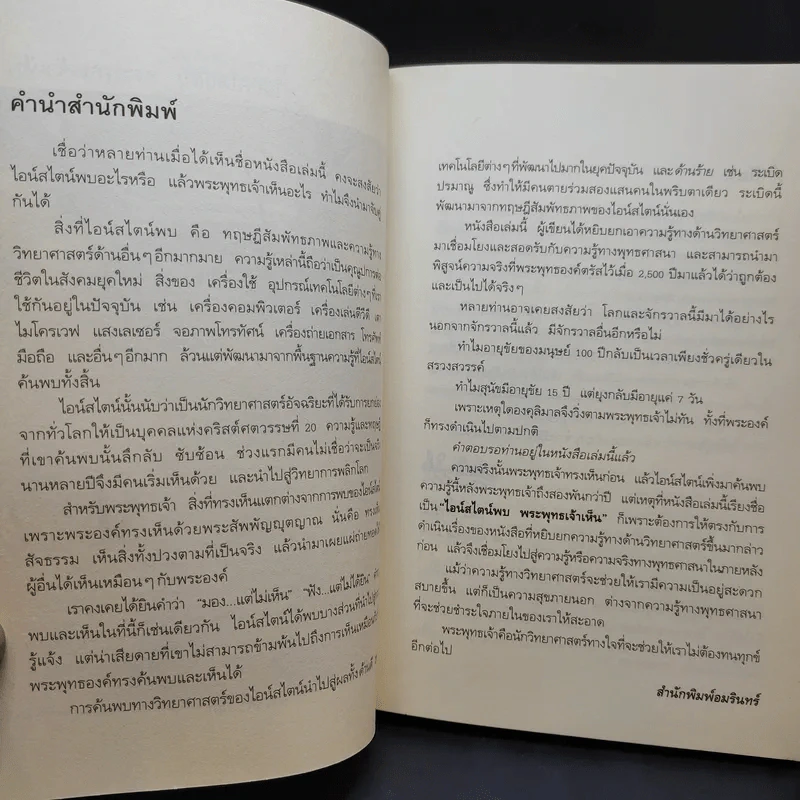 คำนำสำนักพิมพ์
เชื่อว่าหลายท่านเมื่อได้เห็นชื่อหนังสือเล่มนี้ คงจะสงสัยว่า
ไอน์สไตน์พบอะไรหรือ แล้วพระพุทธเจ้าเห็นอะไร ทำไมจึงนำมาจับคู่
กันได้
สิ่งที่ไอน์สไตน์พบ คือ ทฤษฎีสัมพัทธภาพและความรู้ทาง
วิทยาศาสตร์ด้านอื่นๆ อีกมากมาย ความรู้เหล่านี้ถือว่าเป็นคุณูปการต่อ
ชีวิตในสังคมยุคใหม่ สิ่งของ เครื่องใช้ อุปกรณ์เทคโนโลยีต่างๆ ที่เรา
ใช้กันอยู่ในปัจจุบัน เช่น เครื่องคอมพิวเตอร์ เครื่องเล่นดีวีดี เตา
ไมโครเวฟ แสงเลเซอร์ จอภาพโทรทัศน์ เครื่องถ่ายเอกสาร โทรศัพท์
มือถือ และอื่นๆ อีกมาก ล้วนแต่พัฒนามาจากพื้นฐานความรู้ที่ไอน์สไตน์
ค้นพบทั้งสิ้น
ไอน์สไตน์นั้นนับว่าเป็นนักวิทยาศาสตร์อัจฉริยะที่ได้รับการยกย่อง
จากทั่วโลกให้เป็นบุคคลแห่งคริสต์ศตวรรษที่ 20 ความรู้และทฤษฎี
ที่เขาค้นพบนั้นลึกลับ ซับซ้อน ช่วงแรกมีคนไม่เชื่อว่าจะเป็นจริง
นานหลายปีจึงมีคนเริ่มเห็นด้วย และนำไปสู่วิทยาการพลิกโลก
สำหรับพระพุทธเจ้า สิ่งที่ทรงเห็นแตกต่างจากการพบของไอน์สไตน์
เพราะพระองค์ทรงเห็นด้วยพระสัพพัญญุตญาณ นั่นคือ ทรงเห็น
สัจธรรม เห็นสิ่งทั้งปวงตามที่เป็นจริง แล้วนำมาเผยแผ่ถ่ายทอดให้
ผู้อื่นได้เห็นเหมือนๆ กับพระองค์
เราคงเคยได้ยินคำว่า "มอง...แต่ไม่เห็น" "ฟัง...แต่ไม่ได้ยิน"
พบและเห็นในที่นี้ก็เช่นเดียวกัน ไอน์สไตน์ได้พบบางส่วนที่นำไปสู่
รู้แจ้ง แต่น่าเสียดายที่เขาไม่สามารถข้ามพ้นไปถึงการเห็นเหมือน
พระพุทธองค์ทรงค้นพบและเห็นได้
การค้นพบทางวิทยาศาสตร์ของไอน์สไตน์นำไปสู่ผลทั้งด้านดี
เทคโนโลยีต่างๆ ที่พัฒนาไปมากในยุคปัจจุบัน และด้านร้าย เช่น ระเบิด
ปรมาณู ซึ่งทำให้มีคนตายร่วมสองแสนคนในพริบตาเดียว ระเบิดนี้
พัฒนามาจากทฤษฎีสัมพัทธภาพของไอน์สไตน์นั่นเอง
หนังสือเล่มนี้ ผู้เขียนได้หยิบยกเอาความรู้ทางด้านวิทยาศาสตร์
มาเชื่อมโยงและสอดรับกับความรู้ทางพุทธศาสนา และสามารถนำมา
พิสูจน์ความจริงที่พระพุทธองค์ตรัสไว้เมื่อ 2,500 ปีมาแล้วได้ว่าถูกต้อง
และเป็นไปได้จริงๆ
หลายท่านอาจเคยสงสัยว่า โลกและจักรวาลนี้มีมาได้อย่างไร
นอกจากจักรวาลนี้แล้ว มีจักรวาลอื่นอีกหรือไม่
ทำไมอายุขัยของมนุษย์ 100 ปีกลับเป็นเวลาเพียงชั่วครู่เดียวใน
สรวงสวรรค์
ทำไมสุนัขมีอายุขัย 15 ปี แต่ยุงกลับมีอายุแค่ 7 วัน
เพราะเหตุใดองคุลิมาลจึงวิ่งตามพระพุทธเจ้าไม่ทัน ทั้งที่พระองค์
ก็ทรงดำเนินไปตามปกติ
คำตอบรอท่านอยู่ในหนังสือเล่มนี้แล้ว
ความจริงนั้นพระพุทธเจ้าทรงเห็นก่อน แล้วไอน์สไตน์เพิ่งมาค้นพบ
ความรู้นี้หลังพระพุทธเจ้าถึงสองพันกว่าปี แต่เหตุที่หนังสือเล่มนี้เรียงชื่อ
เป็น "ไอน์สไตน์พบ พระพุทธเจ้าเห็น" ก็เพราะต้องการให้ตรงกับการ
ดำเนินเรื่องของหนังสือที่หยิบยกความรู้ทางด้านวิทยาศาสตร์ขึ้นมากล่าว
ก่อน แล้วจึงเชื่อมโยงไปสู่ความรู้หรือความจริงทางพุทธศาสนาในภายหลัง
แม้ว่าความรู้ทางวิทยาศาสตร์จะช่วยให้เรามีความเป็นอยู่สะดวก
สบายขึ้น แต่ก็เป็นความสุขภายนอก ต่างจากความรู้ทางพุทธศาสนา
ที่จะช่วยชำระใจภายในของเราให้สะอาด
พระพุทธเจ้าคือนักวิทยาศาสตร์ทางใจที่จะช่วยให้เราไม่ต้องทนทุกข์
อีกต่อไป
สำนักพิมพ์อมรินทร์